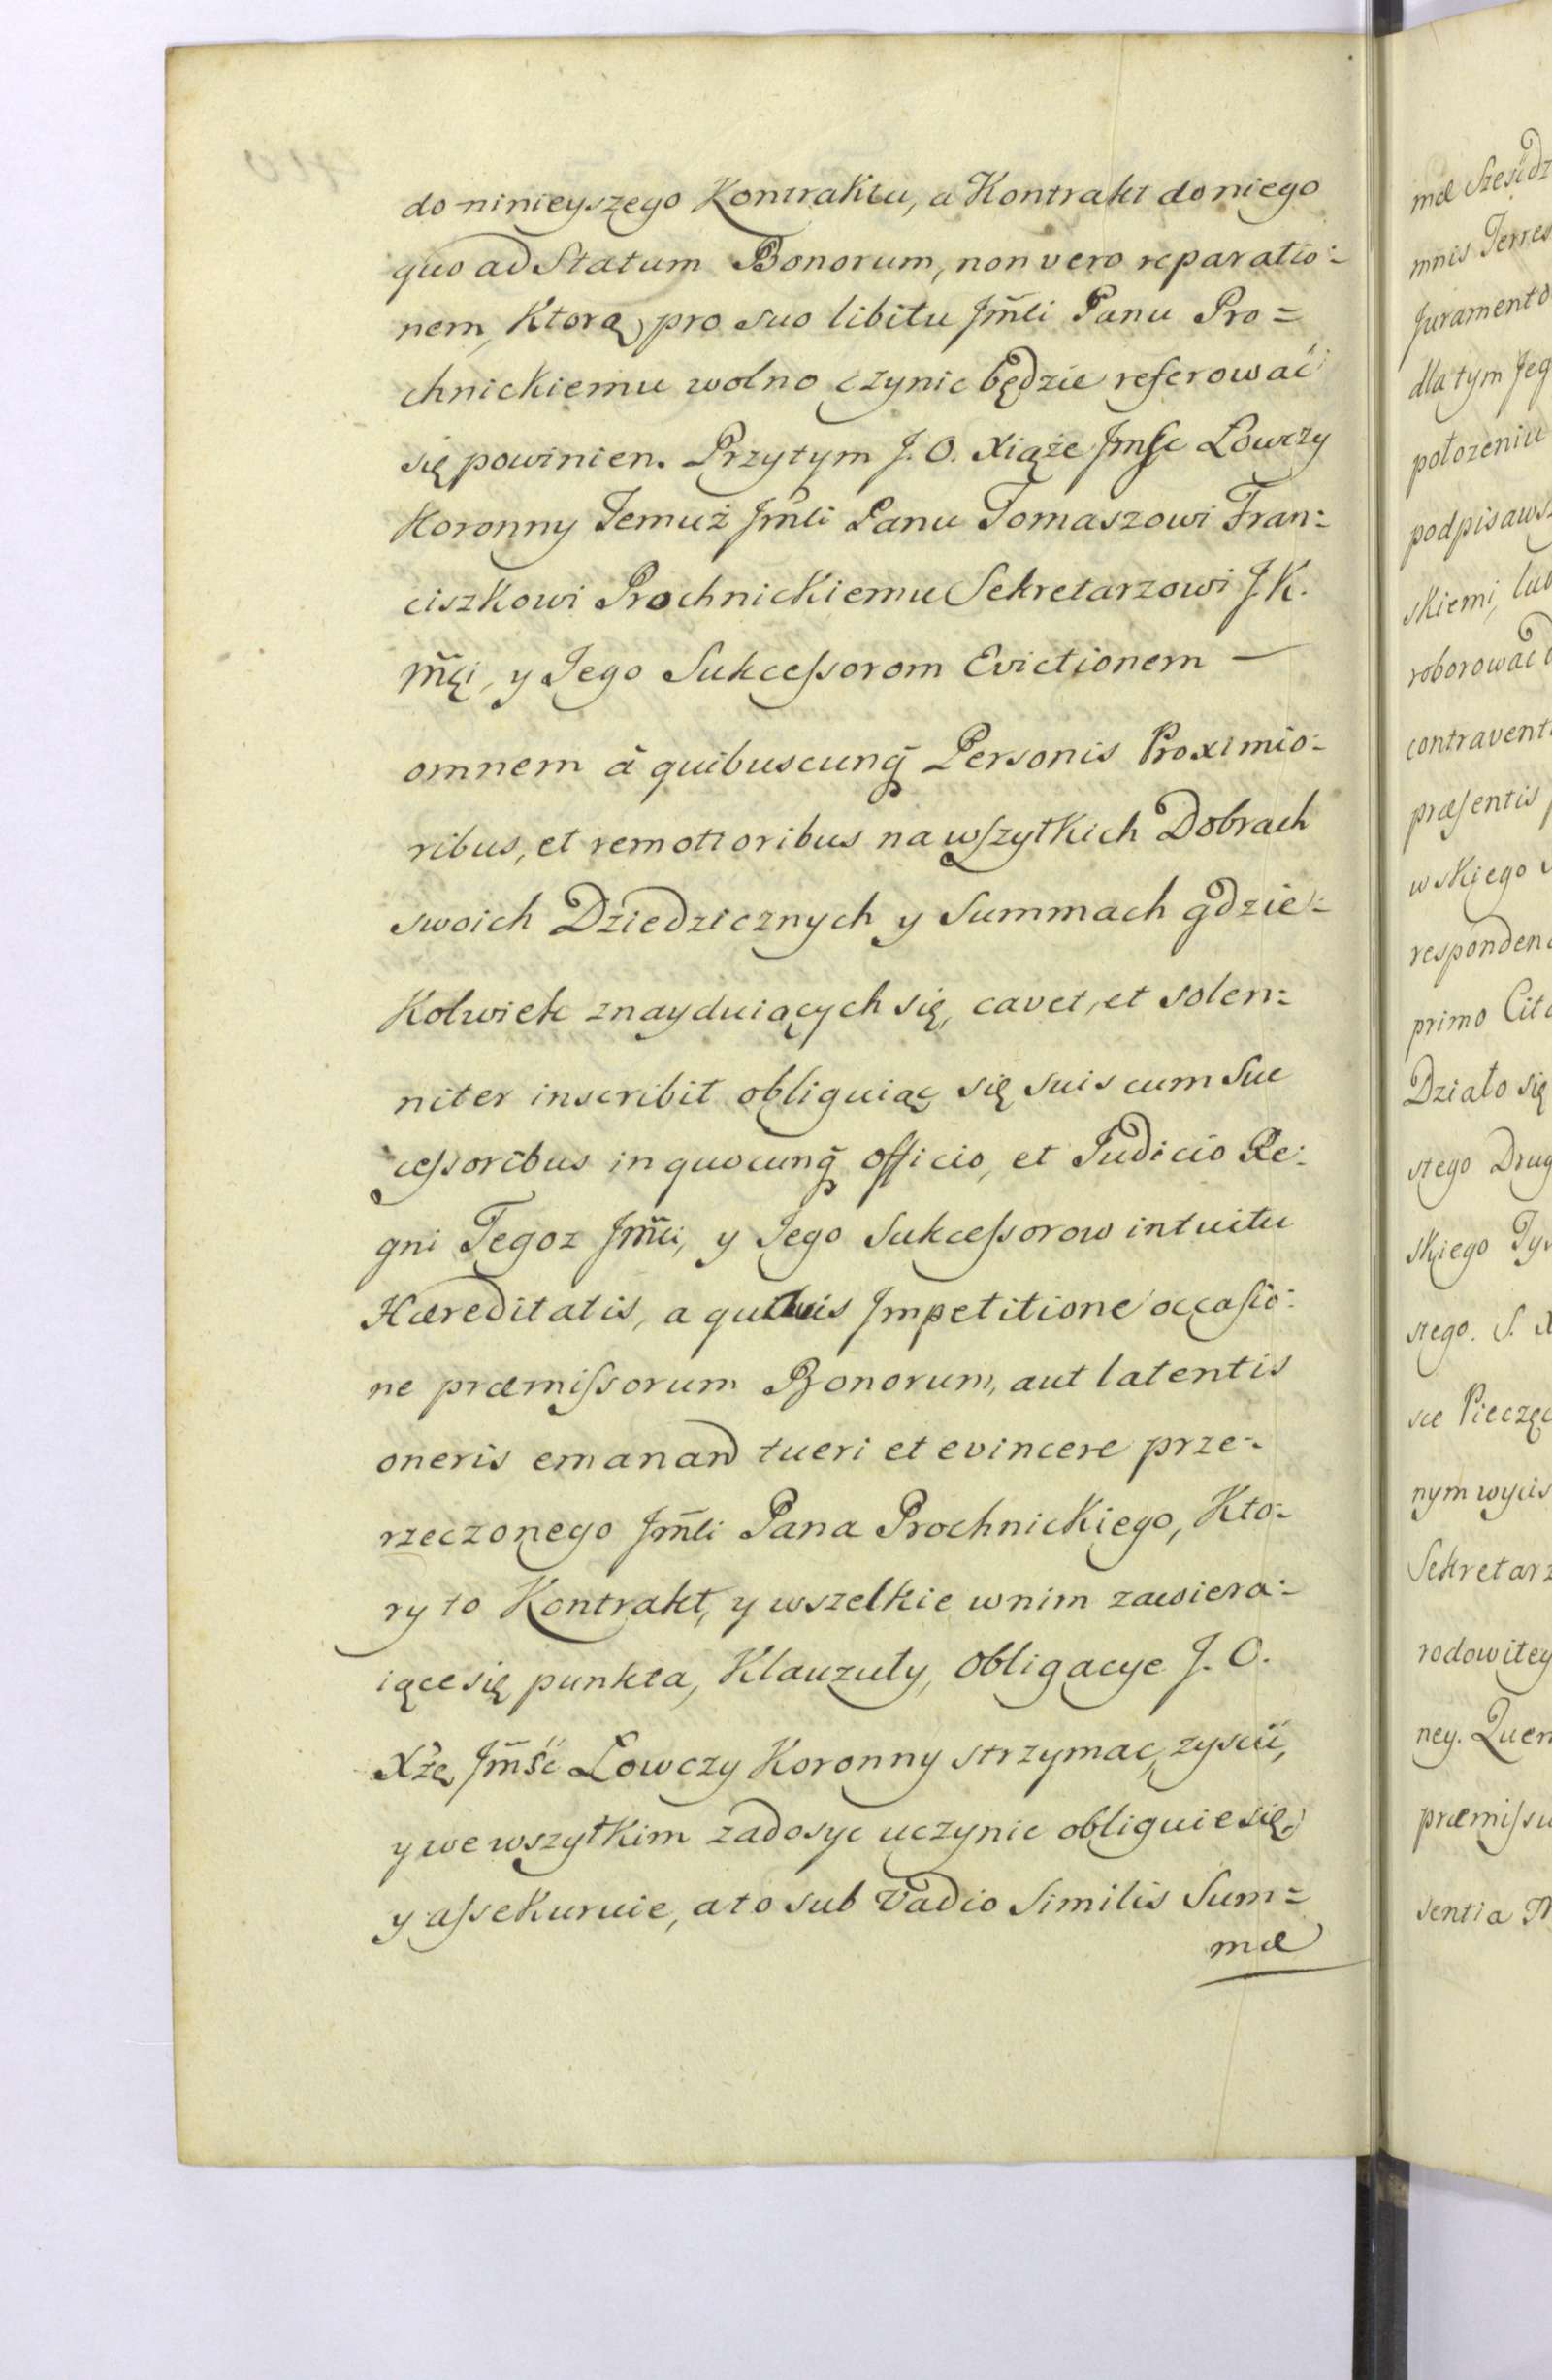 do ninieyszego Kontraktu, a Kontrakt do niego
quo ad Statum Bonorum, non vero reparatio=
nem, Ktorą pro suo libitu Jm̃ci Panu Pro=
chnickiemu wolno czynic będzie referować
się powinien. Przytym J. O. Xiąże Jmſc Łowczy
Koronny Temuż Jm̃ci Panu Tomaszowi Fran=
ciszkowi Prochnickiemu Sekretarzowi J. K.
Mc̃i, y Jego Sukceſsorom Evictionem —
omnem à quibuscunq̃ Personis Proximio=
ribus, et remotioribus na wſzytkich Dobrach
swoich Dziedzicznych y Summach gdzie=
Kolwiek znayduiących się, cavet, et solen=
niter inscribit obliguiąc się suis cum Suc
ceſsoribus in quocunq̃ Officio, et Judicio Re=
gni Tegoz Jm̃ci, y Jego Sukceſsorow intuitu
Hæreditatis, a quibusvis Jmpetitione occaſio=
ne præmiſsorum Bonorum, aut latentis
oneris emanand tueri et evincere prze=
rzeczonego Jm̃ci Pana Prochnickiego, Kto=
ry to Kontrakt, y wszelkie w nim zawiera=
iące się punkta, Klauzuły, Obligacye J. O.
Xże Jm̃ść Łowczy Koronny strzymac, zyscić,
y we wszytkim zadosyc uczynic obliguie się
y aſsekuruie, a to sub Vadio Similis Sum=
mæ
mæ Sześćdz
mnis Terres
Juramento
dla tym Jeg
położeniu
podpisawsz
skiemi, lub
roborowac
contravent
præſentis
wskiego
responden
primo Cita
Działo się
stego Drug
skiego Ty
stego. S.
sce Pieczęc
nym wycis
Sekretarz
rodowitey
ney. Quem
præmiſsu
sentia